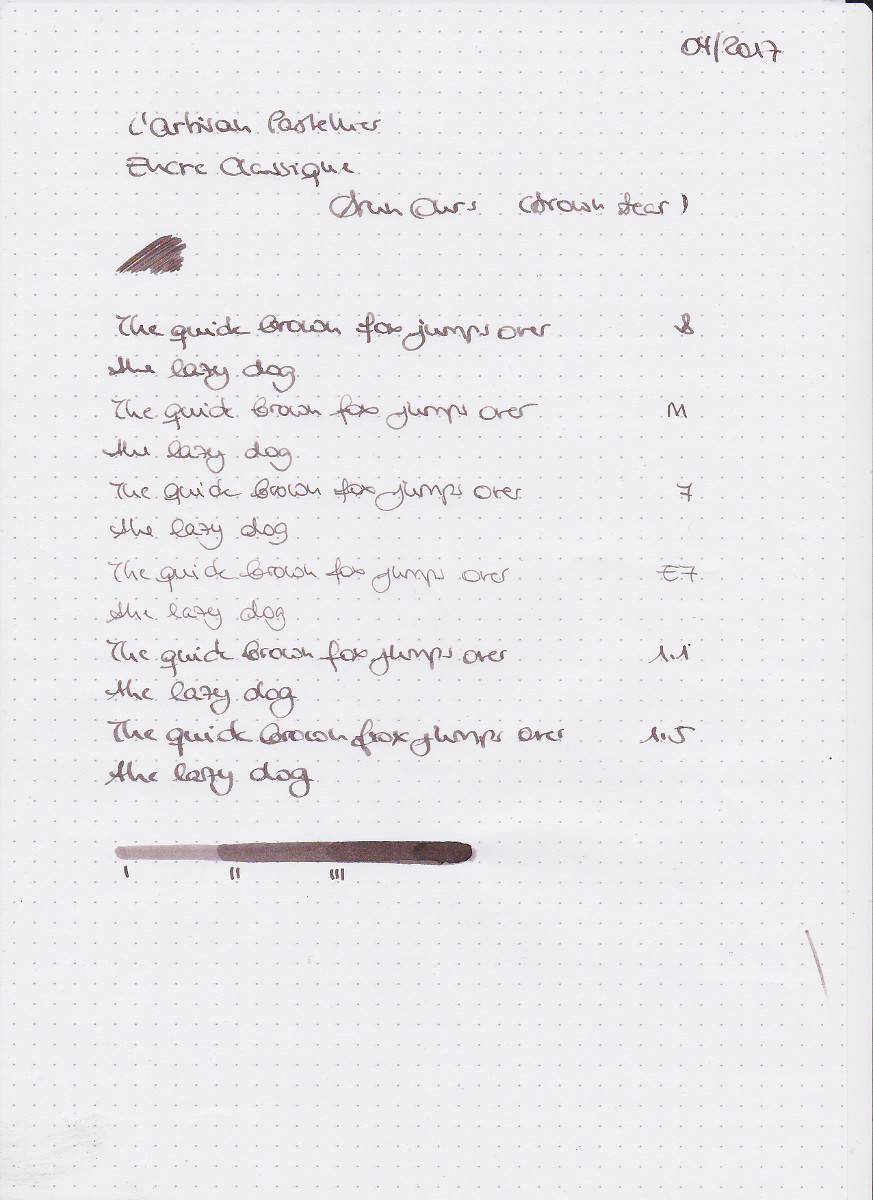 04/2017
L'Artisan Pastellier
Encre Classique
Brun Ours (brown bear)
The quick brown fox jumps over B
the lazy dog
The quick brown fox jumps over M
the lazy dog
The quick brown fox jumps over F
the lazy dog
The quick brown fox jumps over EF
the lazy dog
The quick brown fox jumps over 1.1
the lazy dog
The quick brown fox jumps over 1.5
the lazy dog
I II III